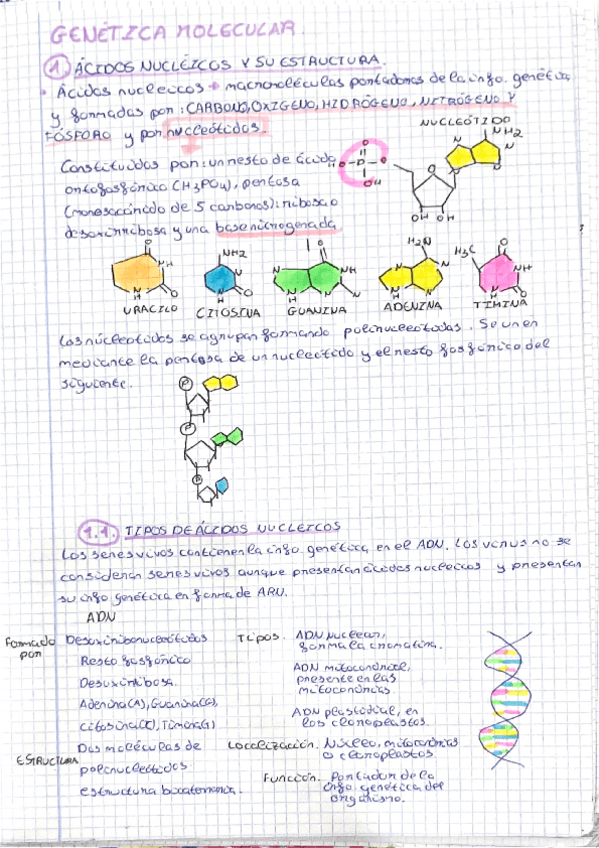 GENÉTICA MOLECULAR.
1 ÁCIDOS NUCLÉICOS Y SU ESTRUCTURA.
Ácidos nucleicos → macromoléculas portadoras de la info. genética
y formadas por: CARBONO, OXÍGENO, HIDRÓGENO, NITRÓGENO Y
FÓSFORO y por nucleótidos.
NUCLEÓTIDO
NH2
N
N
N
N
O
O-P-O
OH
O
OH OH
Constituidos por: un resto de ácido
ortofosfórico (H3PO4), pentosa
(monosacárido de 5 carbonos): ribosa o
desoxirribosa y una base nitrogenada.
O
NH
O
N
H
NH2
N
O
N
H
O
NH
N
N
H
H2N
N
N
N
H
H3C
O
NH
O
N
H
URACILO CITOSINA GUANINA ADENINA TIMINA
Los núcleotidos se agrupan formando polinucleotidos. Se unen
mediante la pentosa de un nucleótido y el resto fosfórico del
siguiente.
P
P
P
1.1. TIPOS DE ÁCIDOS NUCLEICOS
Los seres vivos contienen la info. genética en el ADN. Los virus no se
consideran seres vivos aunque presentan ácidos nucleicos y presentan
su info genética en forma de ARN.
ADN
Formado por
Desoxirribonucleótidos
Resto fosfórico
Desoxirribosa.
Adenina(A), Guanina(G),
Citosina(C), Timina(G)
ESTRUCTURA
Dos moléculas de
polinucleótidos
estructura bicatenaria.
Tipos. ADN nuclear,
forma la cromatina.
ADN mitocondrial,
presente en las
mitocondrias.
ADN plastidial, en
los cloroplastos.
Localización. Núcleo, mitocondrias
o cloroplastos
Función. Portador de la
info. genética del
organismo.